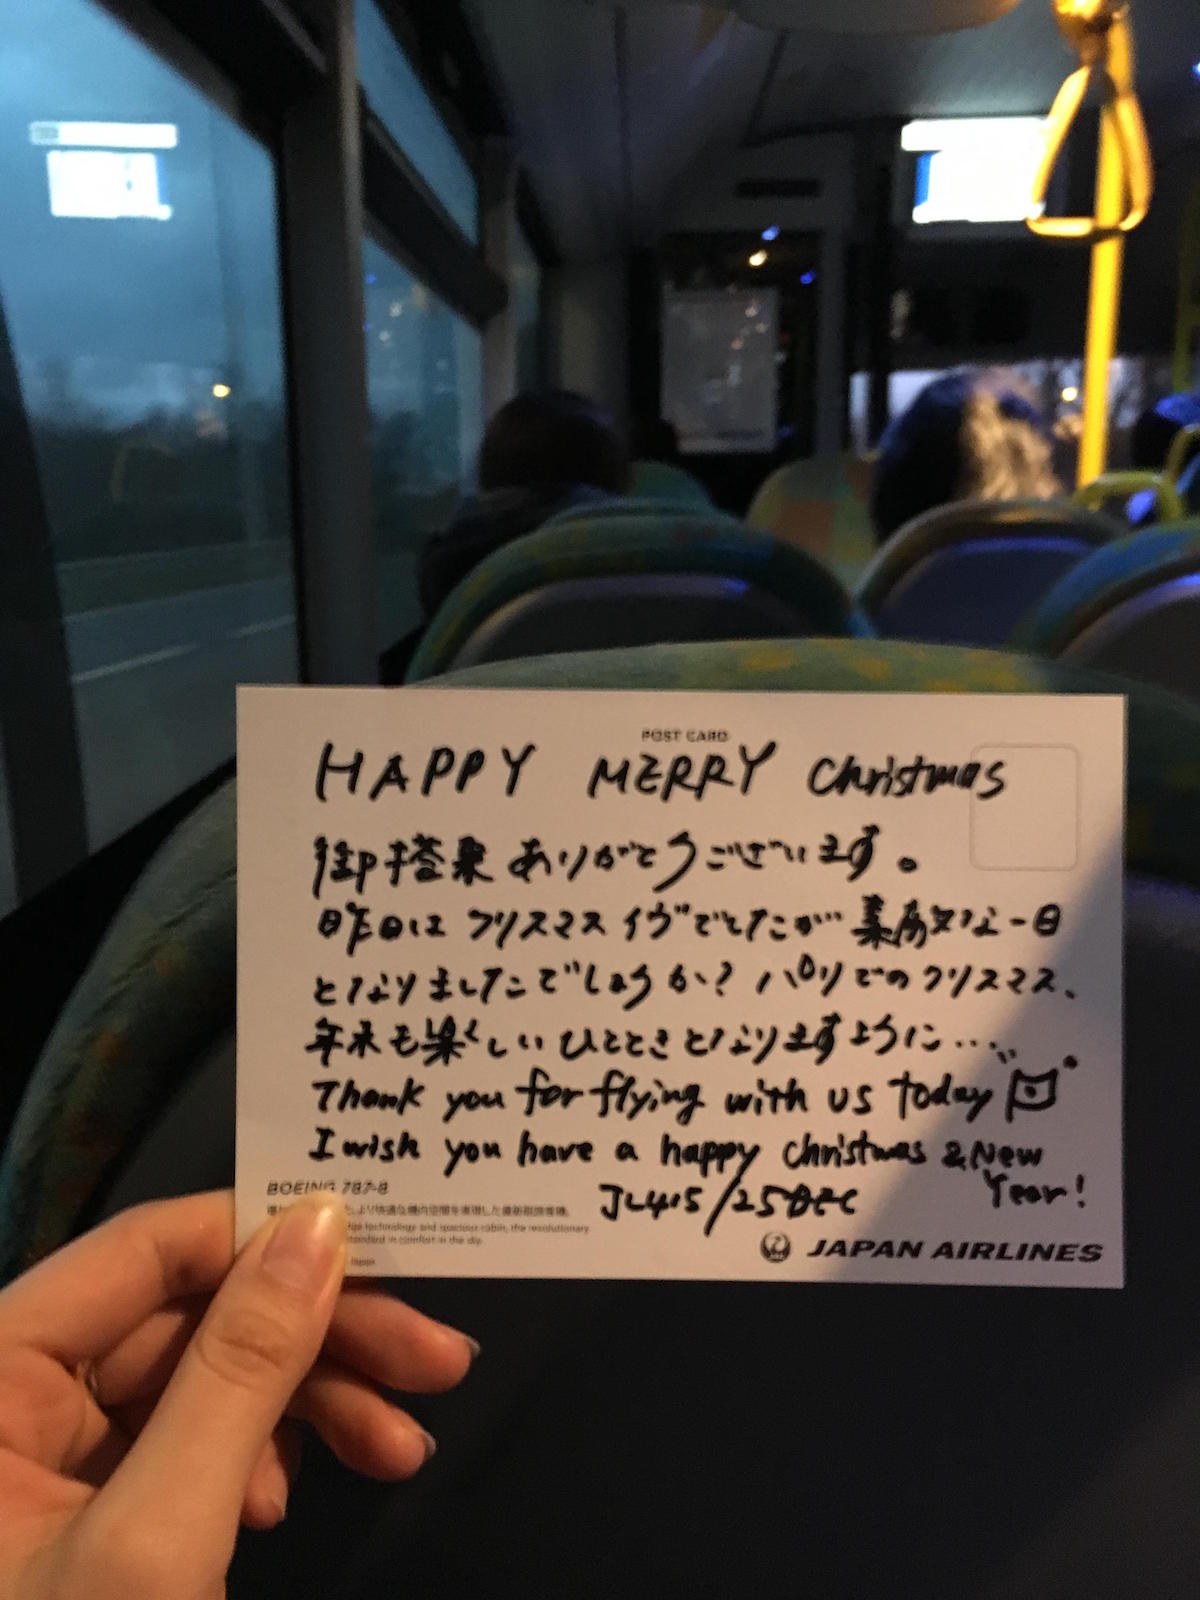 POST CARD
HAPPY MERRY Christmas
御搭乗ありがとうございます。
昨日はクリスマスイヴでしたが素敵な一日
となりましたでしょうか？パリでのクリスマス、
年末も楽しいひとときとなりますように…
Thank you for flying with us today
I wish you have a happy christmas & New
Year!
JL415/25DEC
BOEING 787-8
より快適な機内空間を実現した最新鋭旅客機。
technology and spacious cabin, the revolutionary
standard in comfort in the sky.
Japan
JAPAN AIRLINES